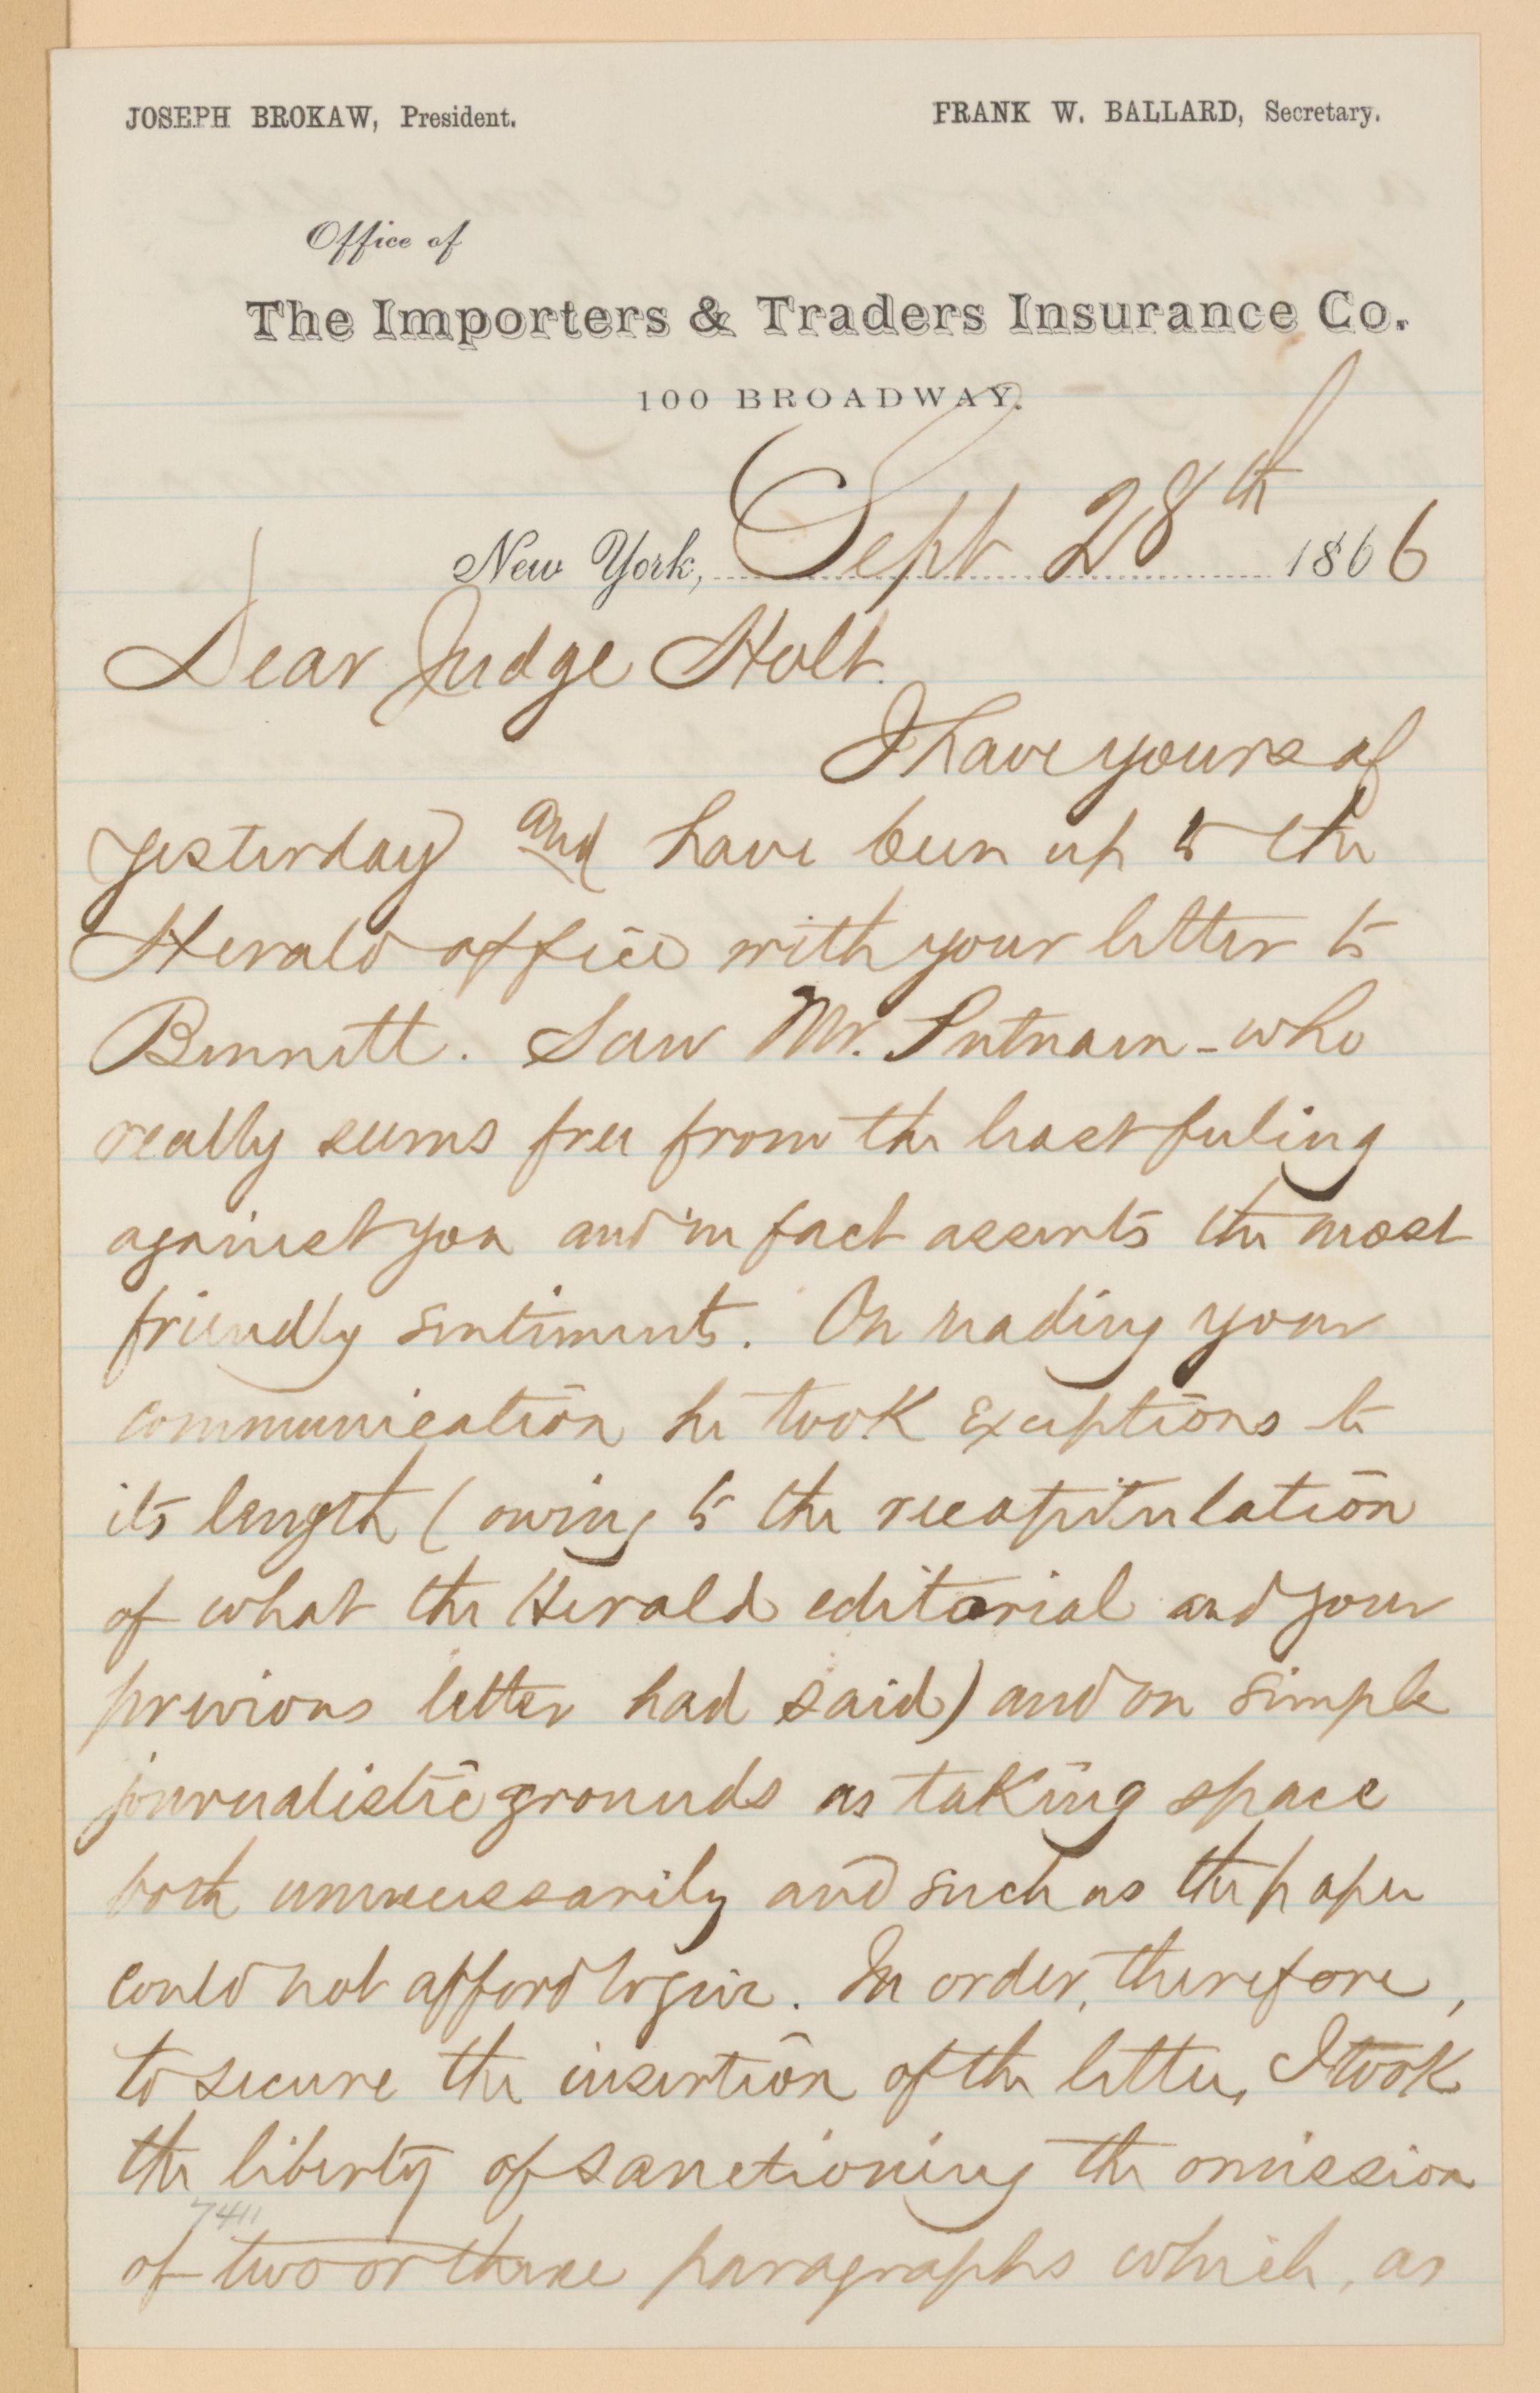 JOSEPH BROKAW, President. FRANK W. BALLARD, Secretary.
Office of
The Importers & Traders Insurance Co.
100 BROADWAY.
New York, Sept 28th 1866
Dear Judge Holt.
I have yours of
yesterday and have been up to the
Herald office with your letter to
Bennett. Saw Mr. Putnam - who
really seems free from the least feeling
against you and in fact asserts the most
friendly sentiments. On reading your
communication he took exceptions to
its length (owing to the recapitulation
of what the Herald editorial and your
previous letter had said) and on simple
journalistic grounds as taking space
both unnecessarily and such as the paper
could not afford to give. In order, therefore,
to secure the insertion of the letter, I took
the liberty of sanctioning the omission
7411
of two or three paragraphs which, as